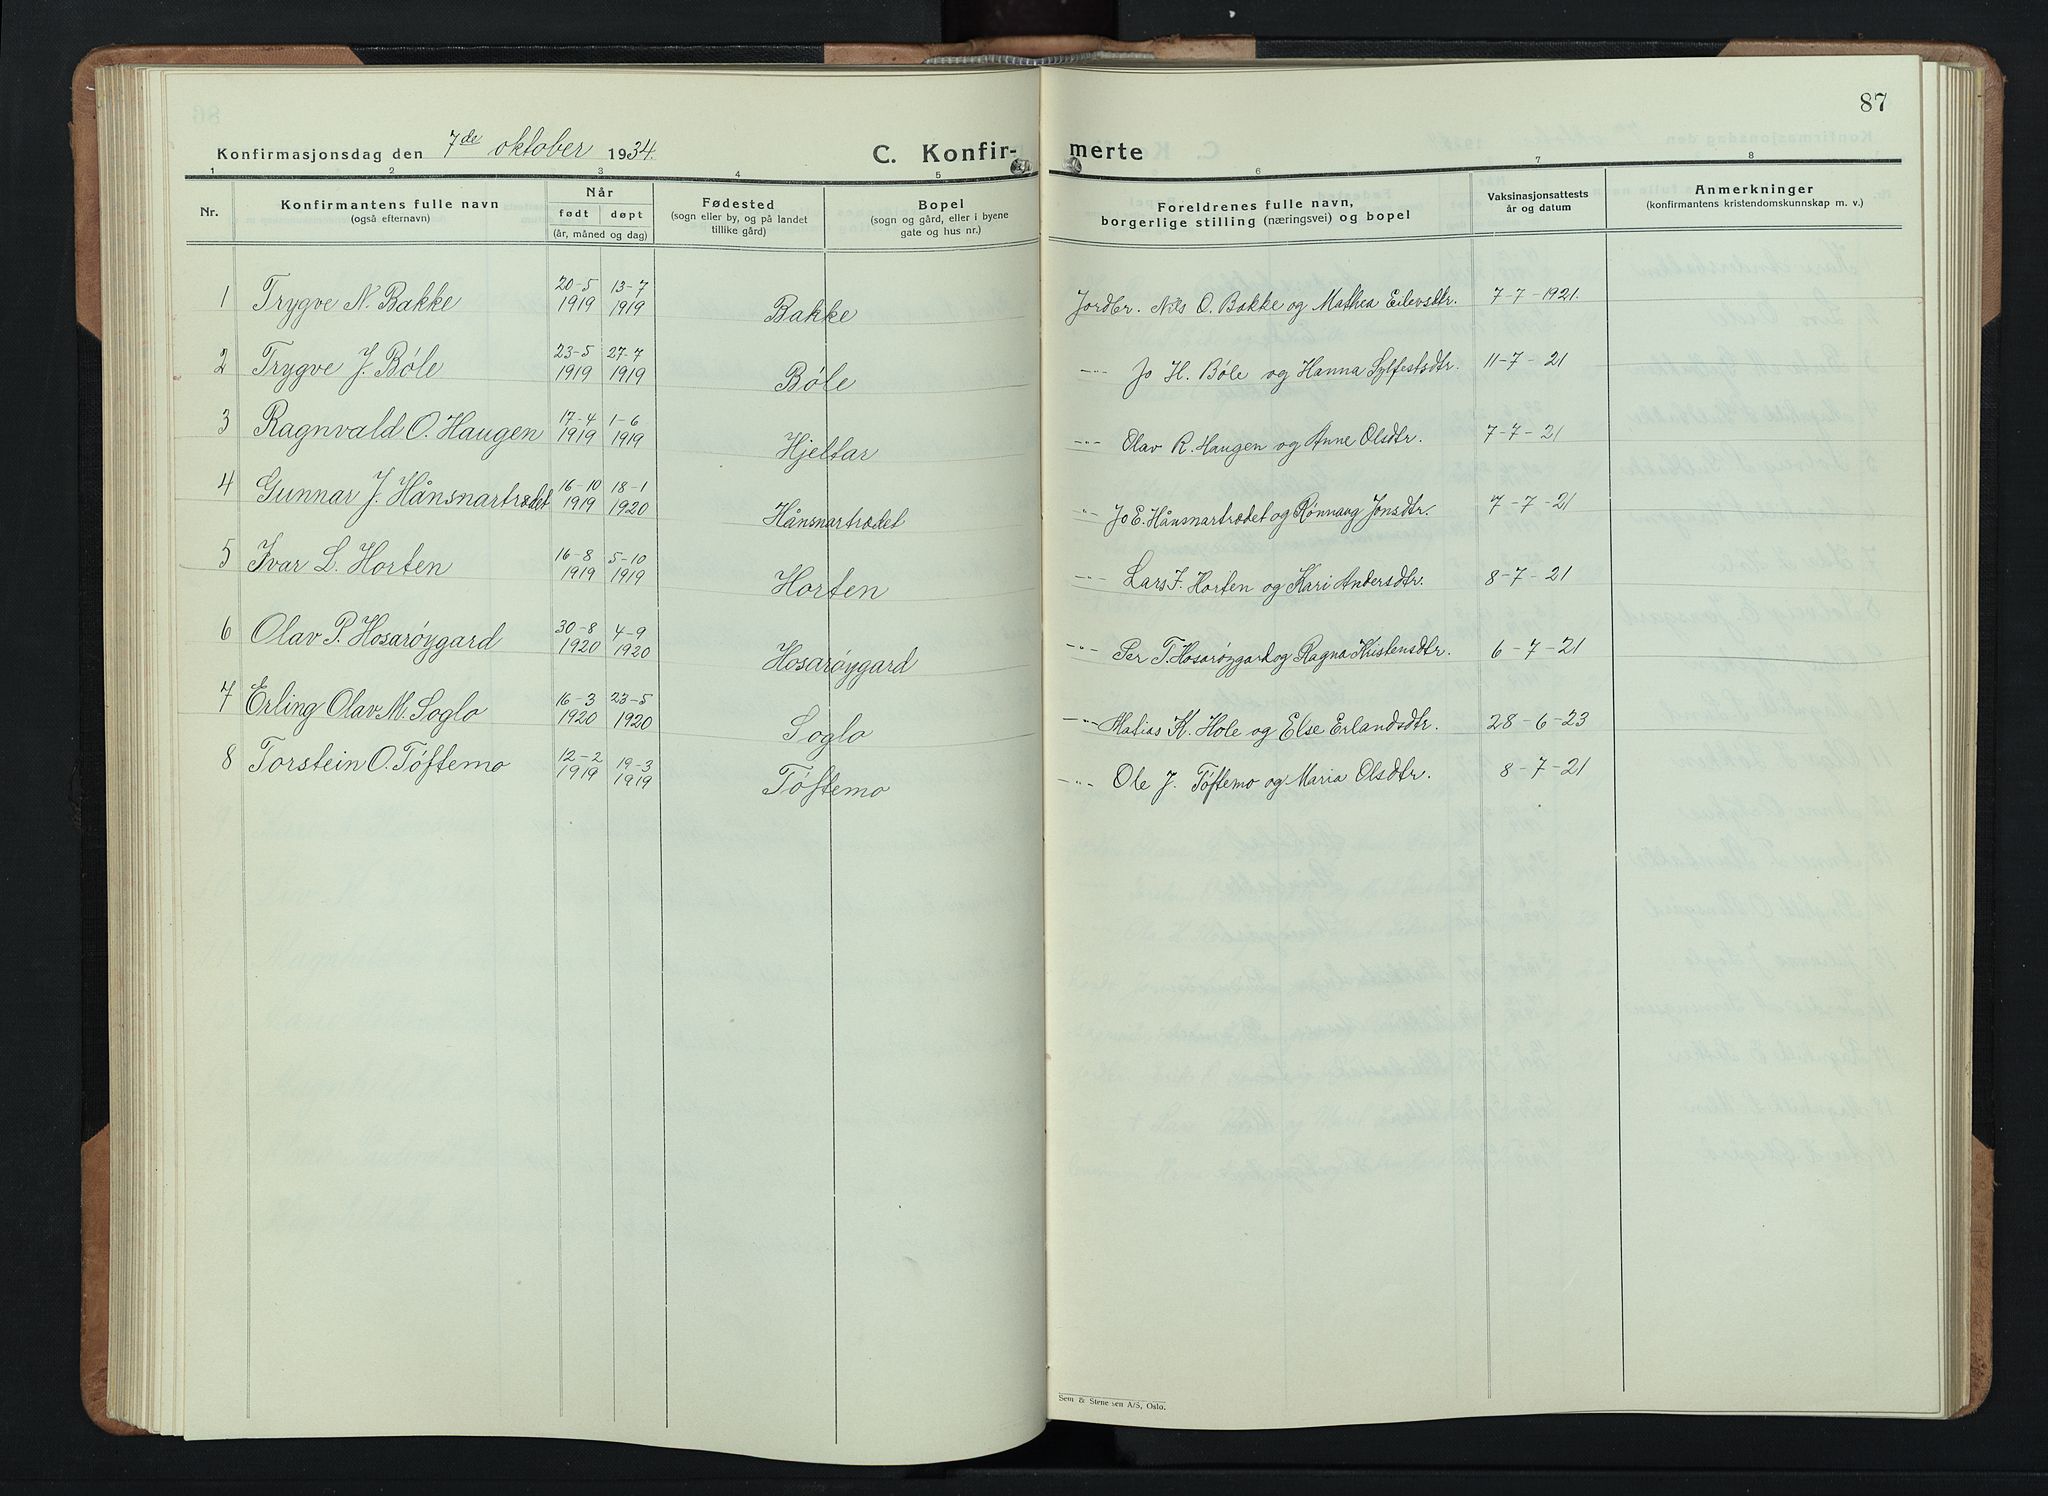 87
Konfirmasjonsdag den 7de oktober 1934.
C. Konfir-
merte
1 2 3 4 5 6 7 8
Nr.
Konfirmantens fulle navn
(også efternavn)
Når
født døpt
(år, måned og dag)
Fødested
(sogn eller by, og på landet
tillike gård)
Bopel
(sogn og gård, eller i byene
gate og hus nr.)
Foreldrenes fulle navn,
borgerlige stilling (næringsvei) og bopel
Vaksinasjonsattests
år og datum
Anmerkninger
(konfirmantens kristendomskunnskap m. v.)
1 Trygve N. Bakke 20-5 1919 13-7 1919 Bakke Jordbr. Nils O. Bakke og Mathea Eilevsdtr. 7-7-1921.
2 Trygve J. Bøle 23-5 1919 27-7 1919 Bøle -"- Jo H. Bøle og Hanna Sylfestsdtr. 11-7-21
3 Ragnvald O. Haugen 17-4 1919 1-6 1919 Hjeltar -"- Olav R. Haugen og Anne Olsdtr. 7-7-21
4 Gunnar J. Hånsnartrædet 16-10 1919 18-1 1920 Hånsnartrædet -"- Jo E. Hånsnartrædet og Rønnaug Jonsdtr. 7-7-21
5 Ivar L. Horten 16-8 1919 5-10 1919 Horten -"- Lars I. Horten og Kari Andersdtr. 8-7-21
6 Olav P. Hosarøygard 30-8 1920 4-9 1920 Hosarøygard -"- Per T. Hosarøygard og Ragna Kristensdtr. 6-7-21
7 Erling Olav M. Soglo 16-3 1920 23-5 1920 Soglo -"- Matias K. Hole og Else Erlandsdtr. 28-6-23
8 Torstein O. Tøftemo 12-2 1919 19-3 1919 Tøftemo -"- Ole J. Tøftemo og Maria Olsdtr. 8-7-21
Sem & Stenersen A/S, Oslo.